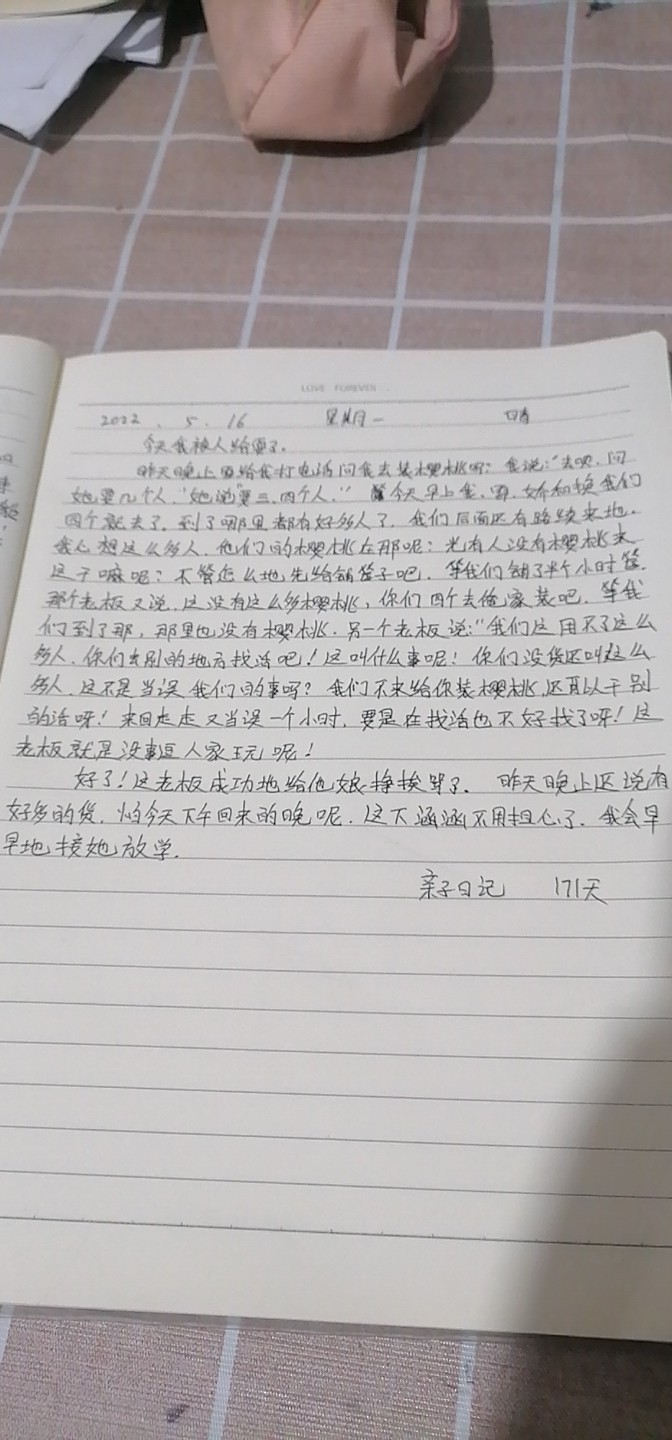 LOVE FOREVER
2022.5.16 星期一 晴
今天我被人给耍了。
昨天晚上 给我打电话问我去装樱桃吗?我说:“去呗,问
她要几个人,”她说“要三、四个人。” 今天早上我、 、娇和换我们
四个就去了,到了哪里都有好多人了,我们后面还有路续来地。
我心想这么多人,他们的樱桃在那呢?光有人没有樱桃来
这干嘛呢?不管怎么地先给铺筐子吧,等我们铺了半个小时筐,
那个老板又说,这没有这么多樱桃,你们四个去他家装吧,等我
们到了那,那里也没有樱桃,另一个老板说:“我们这用不了这么
多人,你们去别的地方找活吧!这叫什么事呢!你们没货还叫这么
多人,这不是当误我们的事吗?我们不来给你装樱桃,还可以干别
的活呀!来回走走又当误一个小时,要是在找活也不好找了呀!这
老板就是没事逗人家玩呢!
好了!这老板成功地给他娘挣挨骂了。昨天晚上还说有
好多的货,怕今天下午回来的晚呢,这下涵涵不用担心了,我会早
早地接她放学。
亲子日记 171天